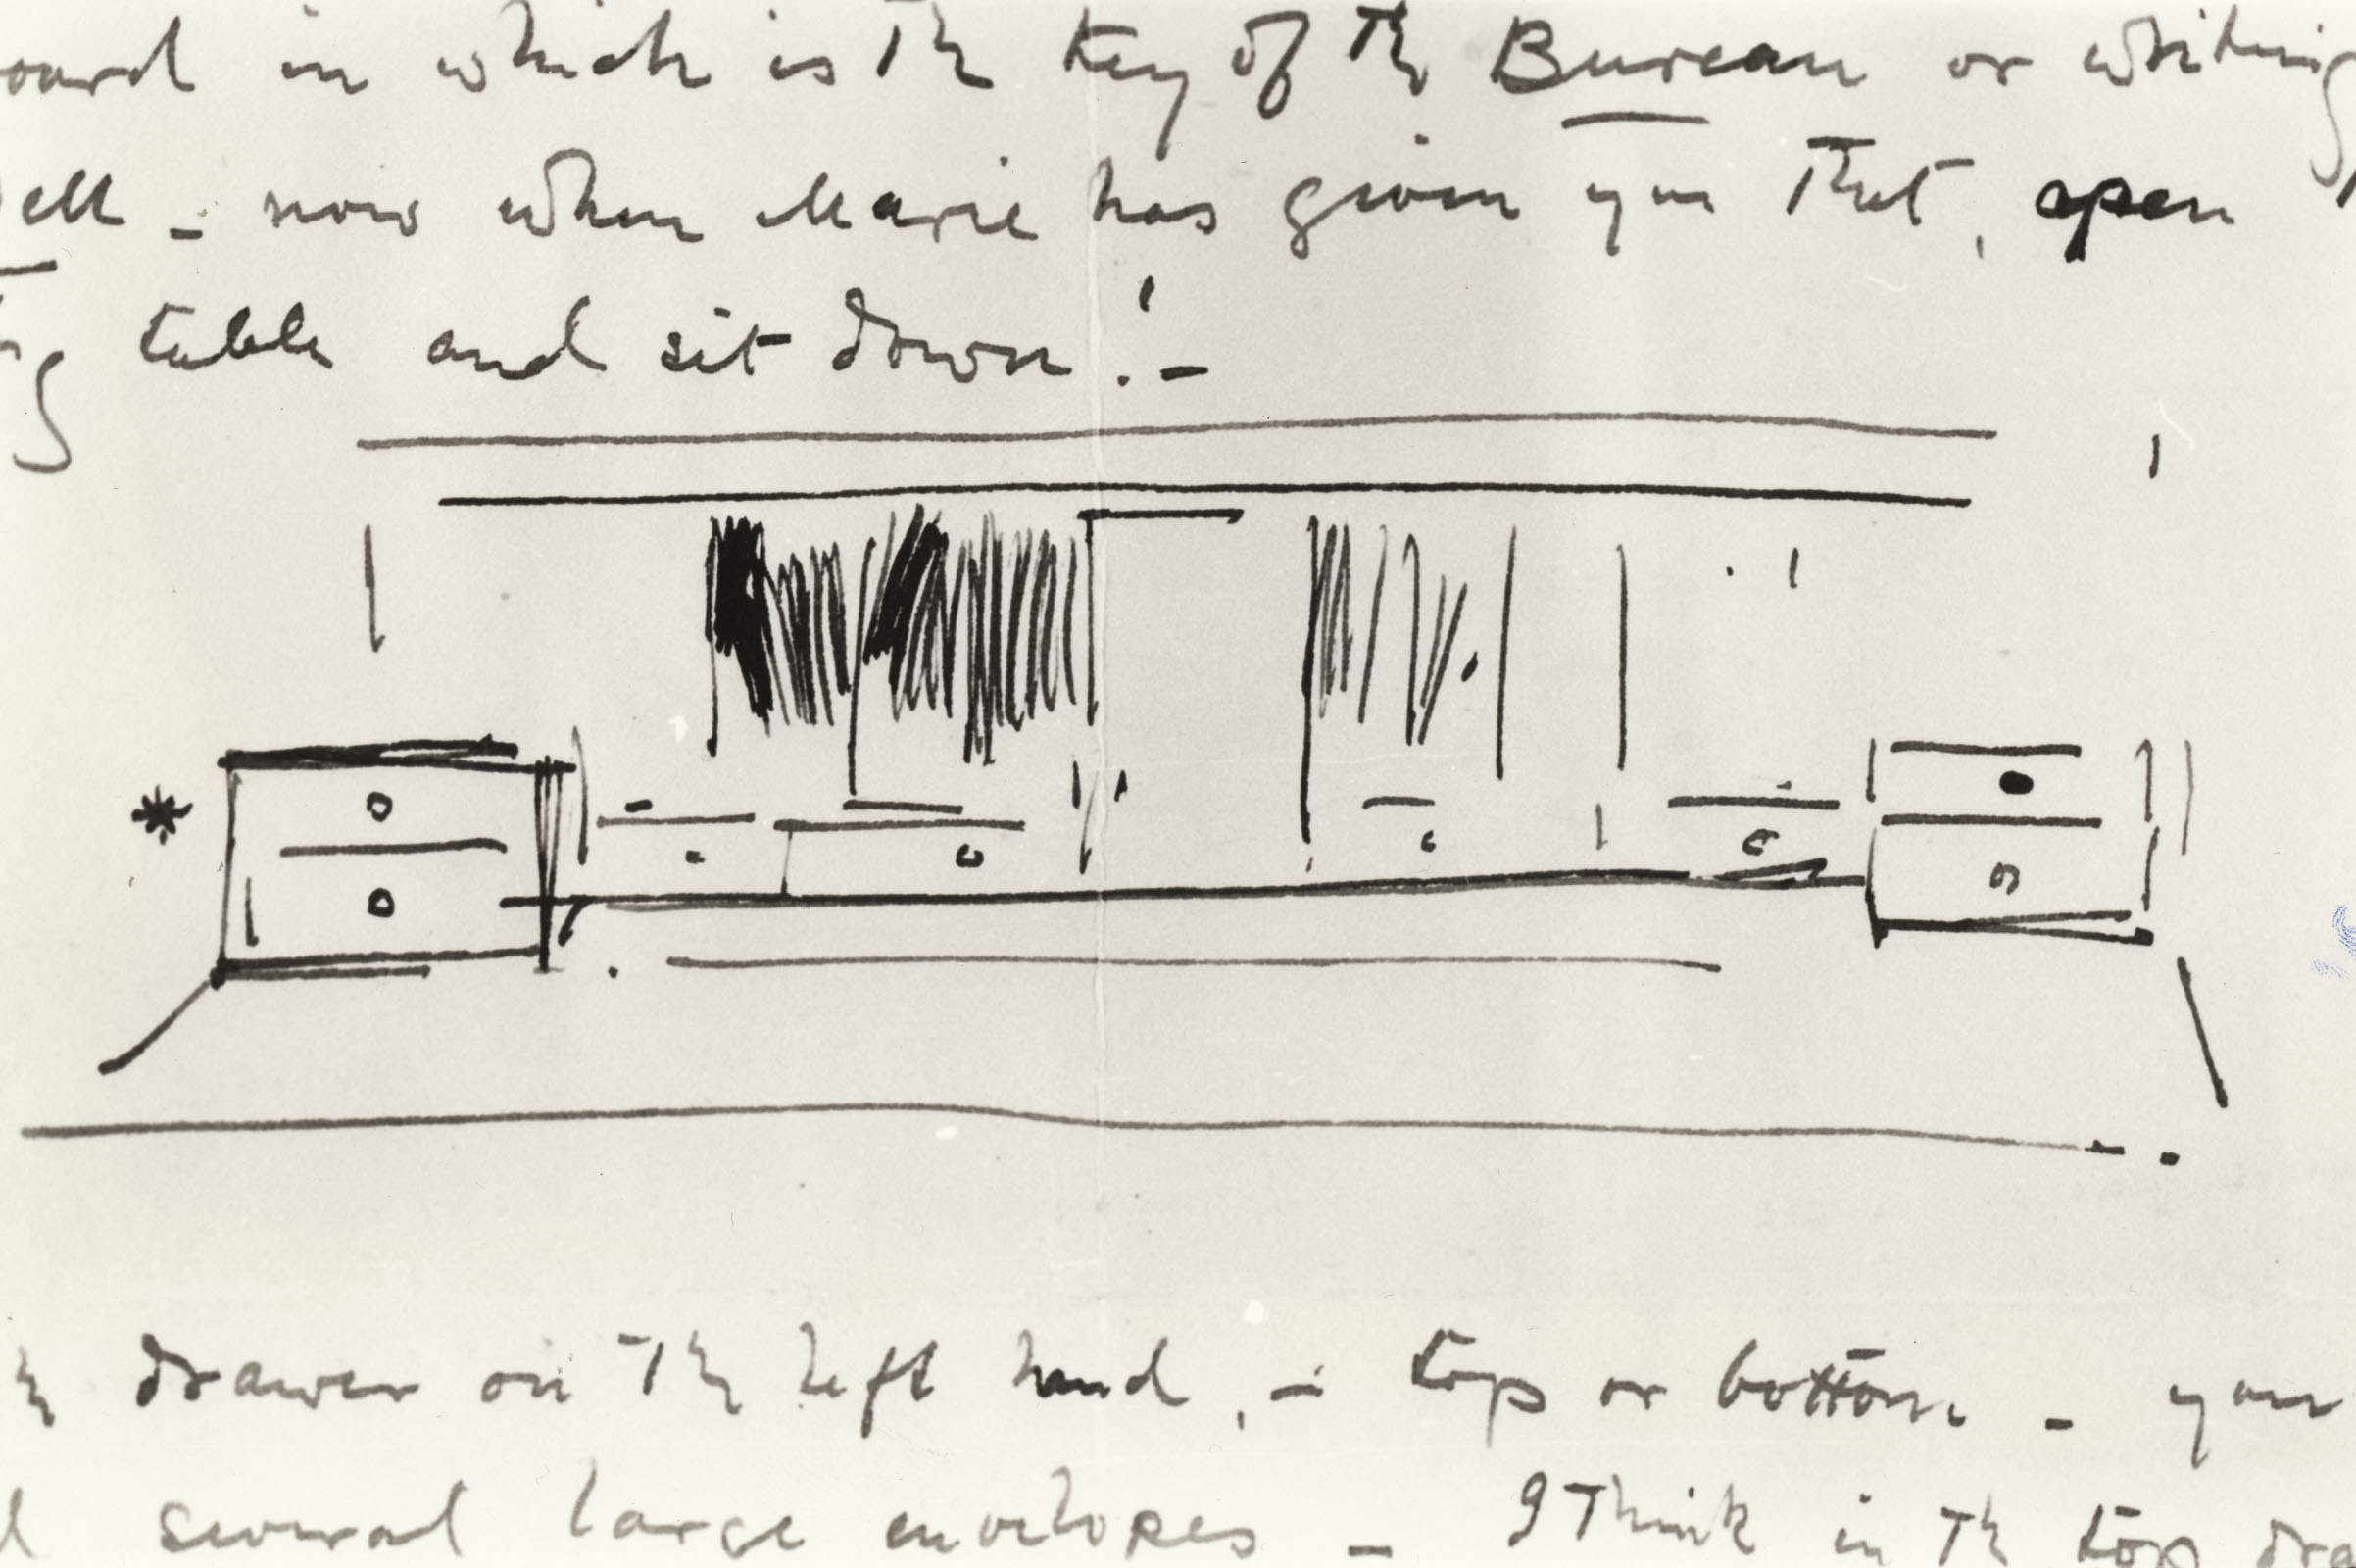 oard in which is Th key of Th Bureau or writing
ell - now when Marie has given you That, open
table and sit down! -
*
drawer on Th left hand, - top or bottom - you
several large envelopes - I Think in Th top dra